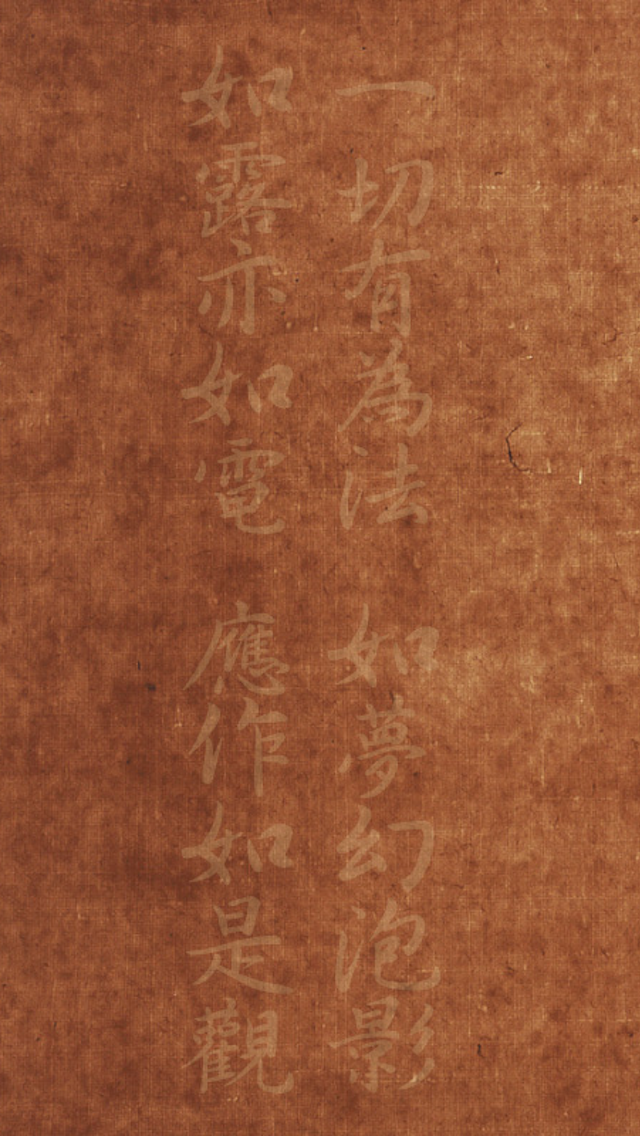 一切有為法 如夢幻泡影
如露亦如電 應作如是觀